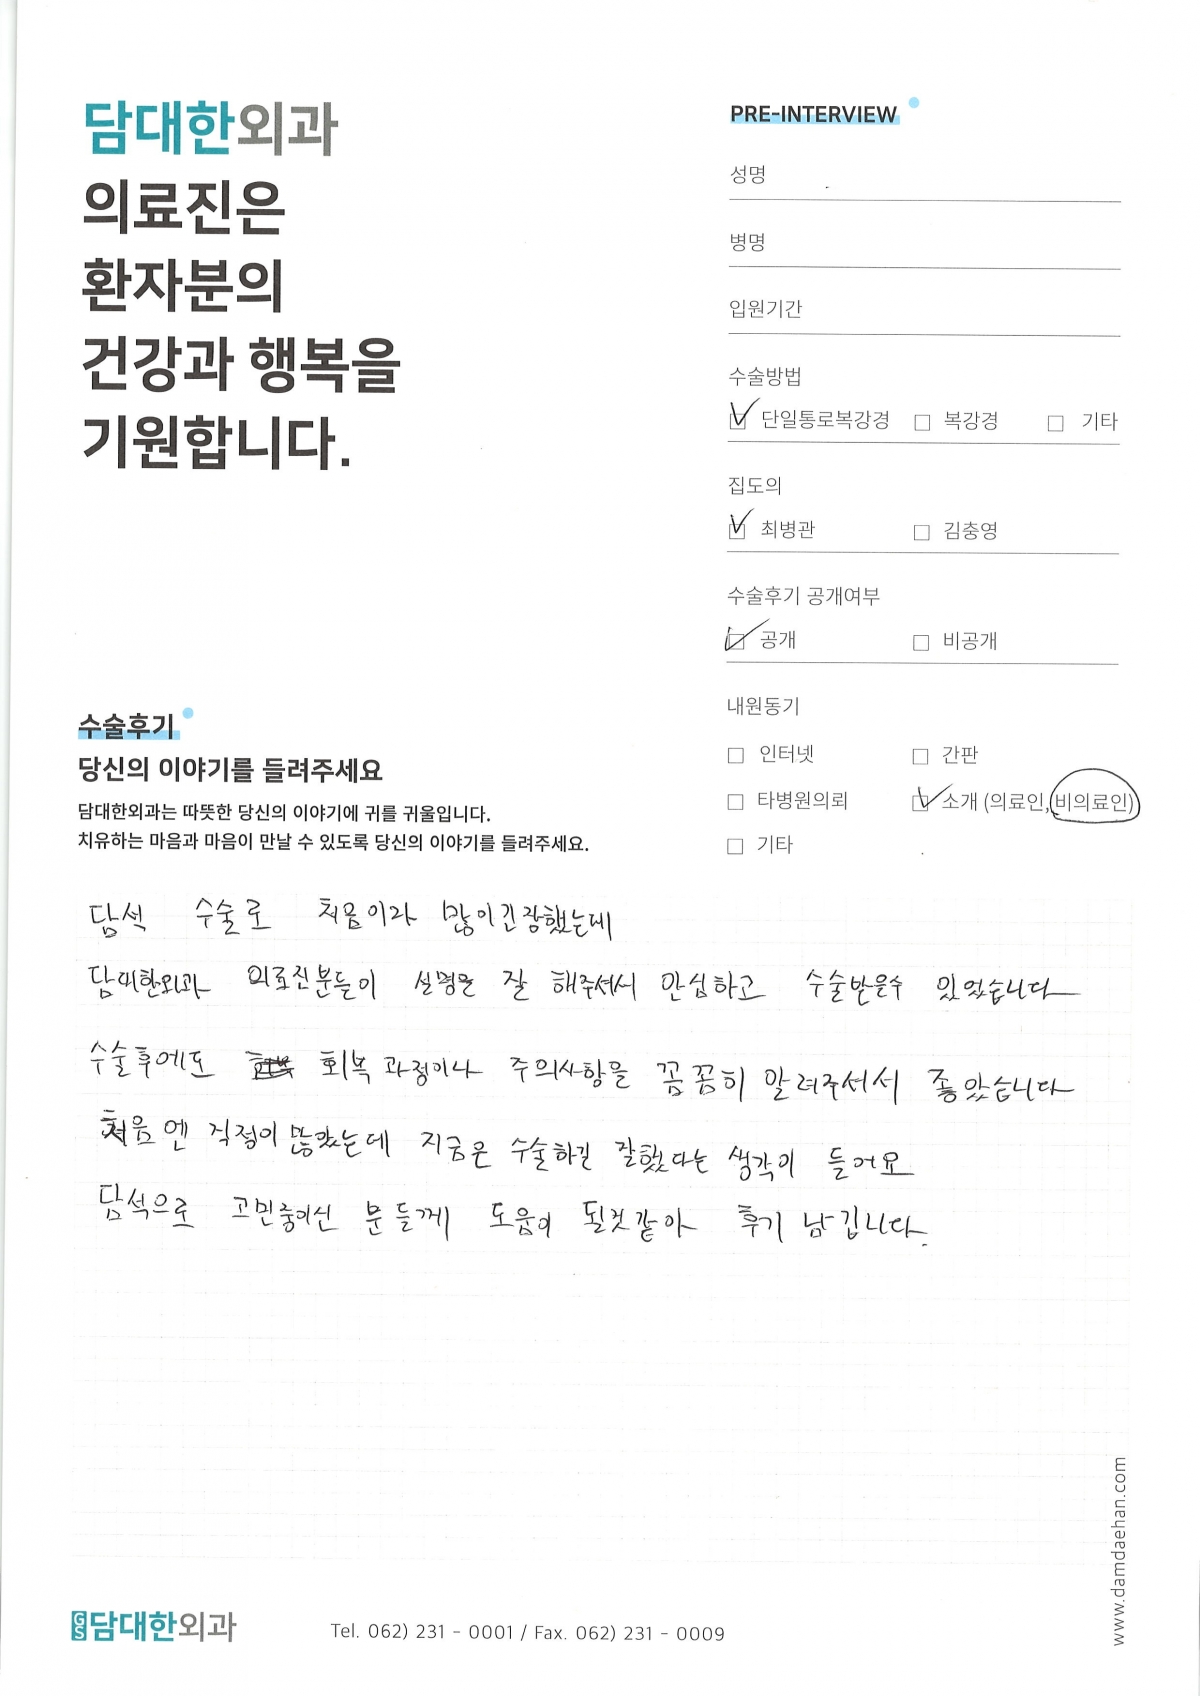 담대한외과
의료진은
환자분의
건강과 행복을
기원합니다.
PRE-INTERVIEW
성명
병명
입원기간
수술방법
☑ 단일통로복강경 □ 복강경 □ 기타
집도의
☑ 최병관 □ 김충영
수술후기 공개여부
☑ 공개 □ 비공개
내원동기
□ 인터넷 □ 간판
□ 타병원의뢰 ☑ 소개 (의료인, 비의료인)
□ 기타
수술후기
당신의 이야기를 들려주세요
담대한외과는 따뜻한 당신의 이야기에 귀를 귀울입니다.
치유하는 마음과 마음이 만날 수 있도록 당신의 이야기를 들려주세요.
담석 수술로 처음이라 많이긴장했는데
담대한외과 의료진분들이 설명을 잘 해주셔서 안심하고 수술받을수 있었습니다
수술후에도 회복 과정이나 주의사항을 꼼꼼히 알려주셔서 좋았습니다
처음엔 걱정이 많았는데 지금은 수술하길 잘했다는 생각이 들어요
담석으로 고민중이신 분들께 도움이 될것같아 후기 남깁니다.
GS 담대한외과
Tel. 062) 231 - 0001 / Fax. 062) 231 - 0009
www.damdaehan.com